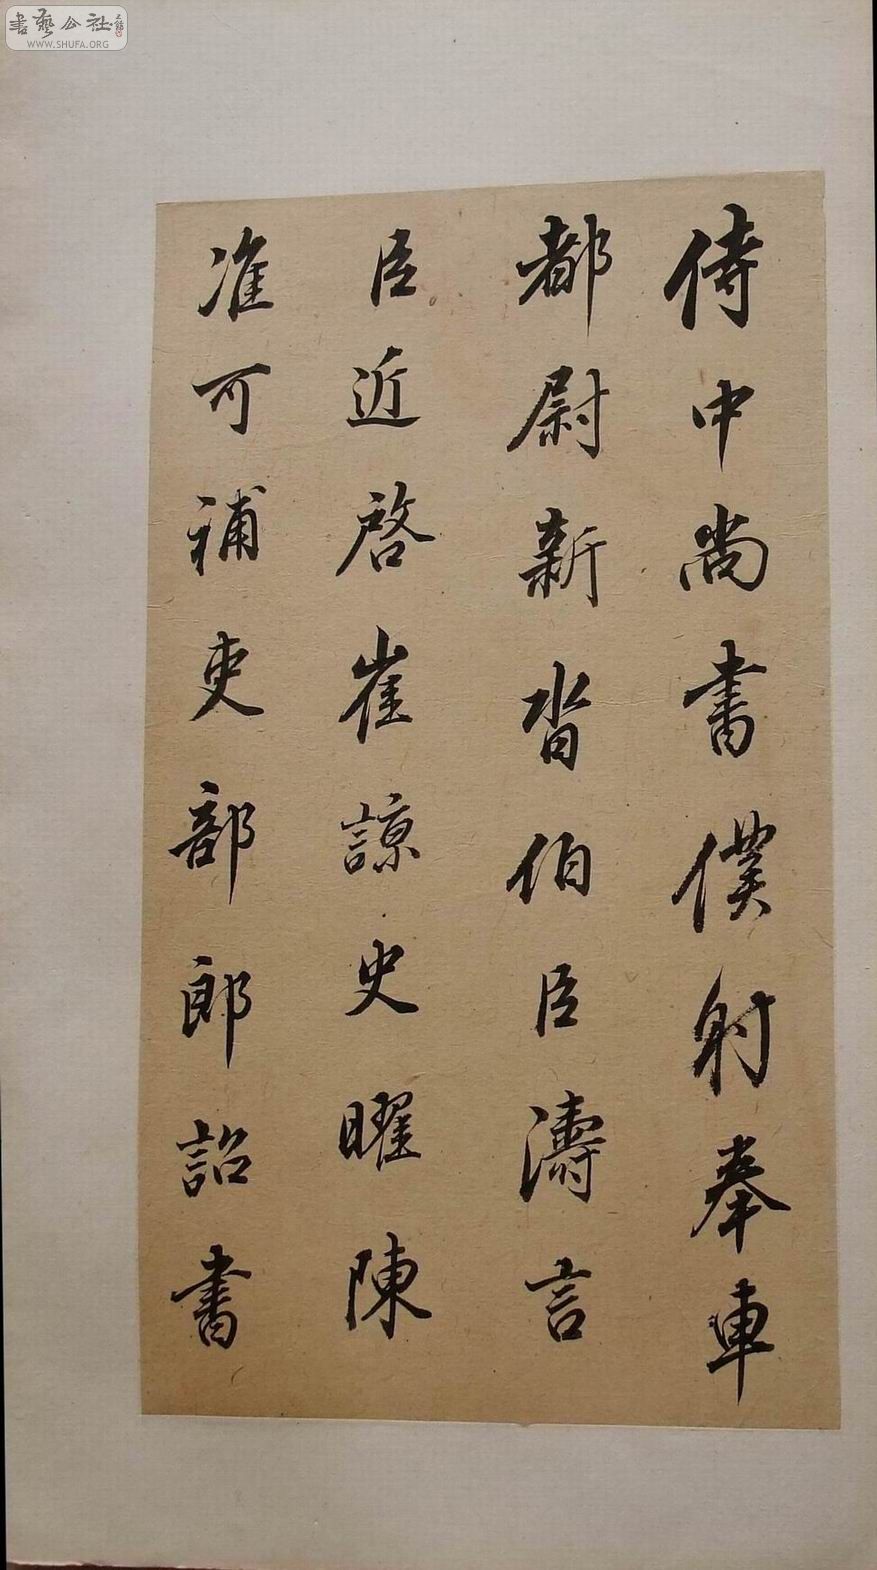 侍中尚書僕射奉車
都尉新沓伯臣濤言
臣近啓崔諒史曜陳
准可補吏部郎詔書
書藝公社
WWW.SHUFA.ORG